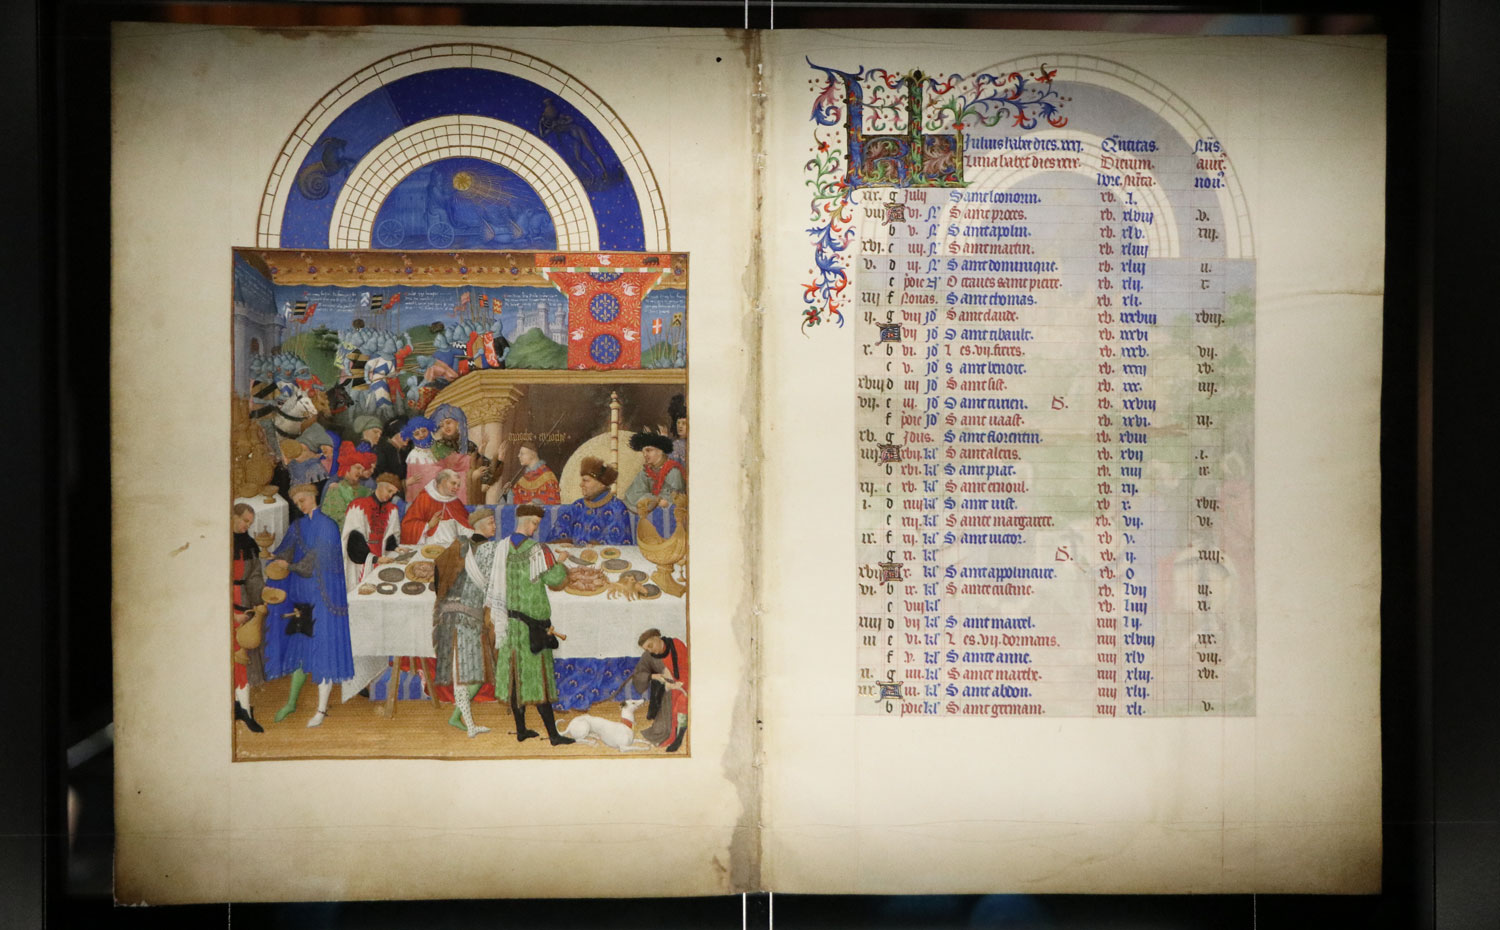 aproche + aproche +
Julius habet dies .xxxi. Quātitas. Nūs.
Luna habet dies xxx. Dierum. aure.
hore. Mīta. nou.
xix. g Julij Saint leonorin. xv. l.
viij A vi. N° Saint proces. xv. xlviij .v.
b v. N° Saint apolin. xv. xlv. xiij.
xvi. c iiij. N° Saint martin. xv. xliiij
v. d iij. N° Saint dominique. xv. xliij ij.
e p̄die N° Octaves saint pierre. xv. xlij. x.
xiij f Nonas. Saint thomas. xv. xli.
ij. g viij Jd Saint claude. xv. xxxviij xviij.
A vij Jd Saint tibault. xv. xxxvi
x. b vi. Jd Les .vij. freres. xv. xxxv. vij.
c v. Jd saint benoit. xv. xxxij xv.
xviij d iiij Jd Saint sist. xv. xxx. iiij.
vij. e iij. Jd Saint turien. D. xv. xxviij
f p̄die Jd Saint vaast. xv. xxvi. xij.
xv. g Jdus. Saint florentin. xv. xxiij
iiij. A xvij. kl Saint alexis. xv. xvij .i.
b xvi. kl Saint piat. xv. xiiij ix.
xij. c xv. kl Saint ernoul. xv. xij.
i. d xiiij kl Saint iust. xv. x. xvij.
e xiij. kl Sainte margarete. xv. vij. vi.
ix. f xij. kl Saint victor. xv. v.
g xi. kl D. xv. ij. xiiij.
xvij A x. kl Saint appolinaire. xv. o
vi. b ix. kl Sainte cristine. xv. lvij iij.
c viij kl xv. liiij xi.
xiiij d vij kl Saint marcel. xiiij lij.
iij e vi. kl Les .vij. dormans. xiiij xlviij xix.
f v. kl Sainte anne. xiiij xlv viij.
xi. g iiij. kl Sainte marthe. xiiij xliij. xvi.
xix. A iij. kl Saint abdon. xiiij xlij.
b p̄die kl Saint germain. xiiij xli. v.